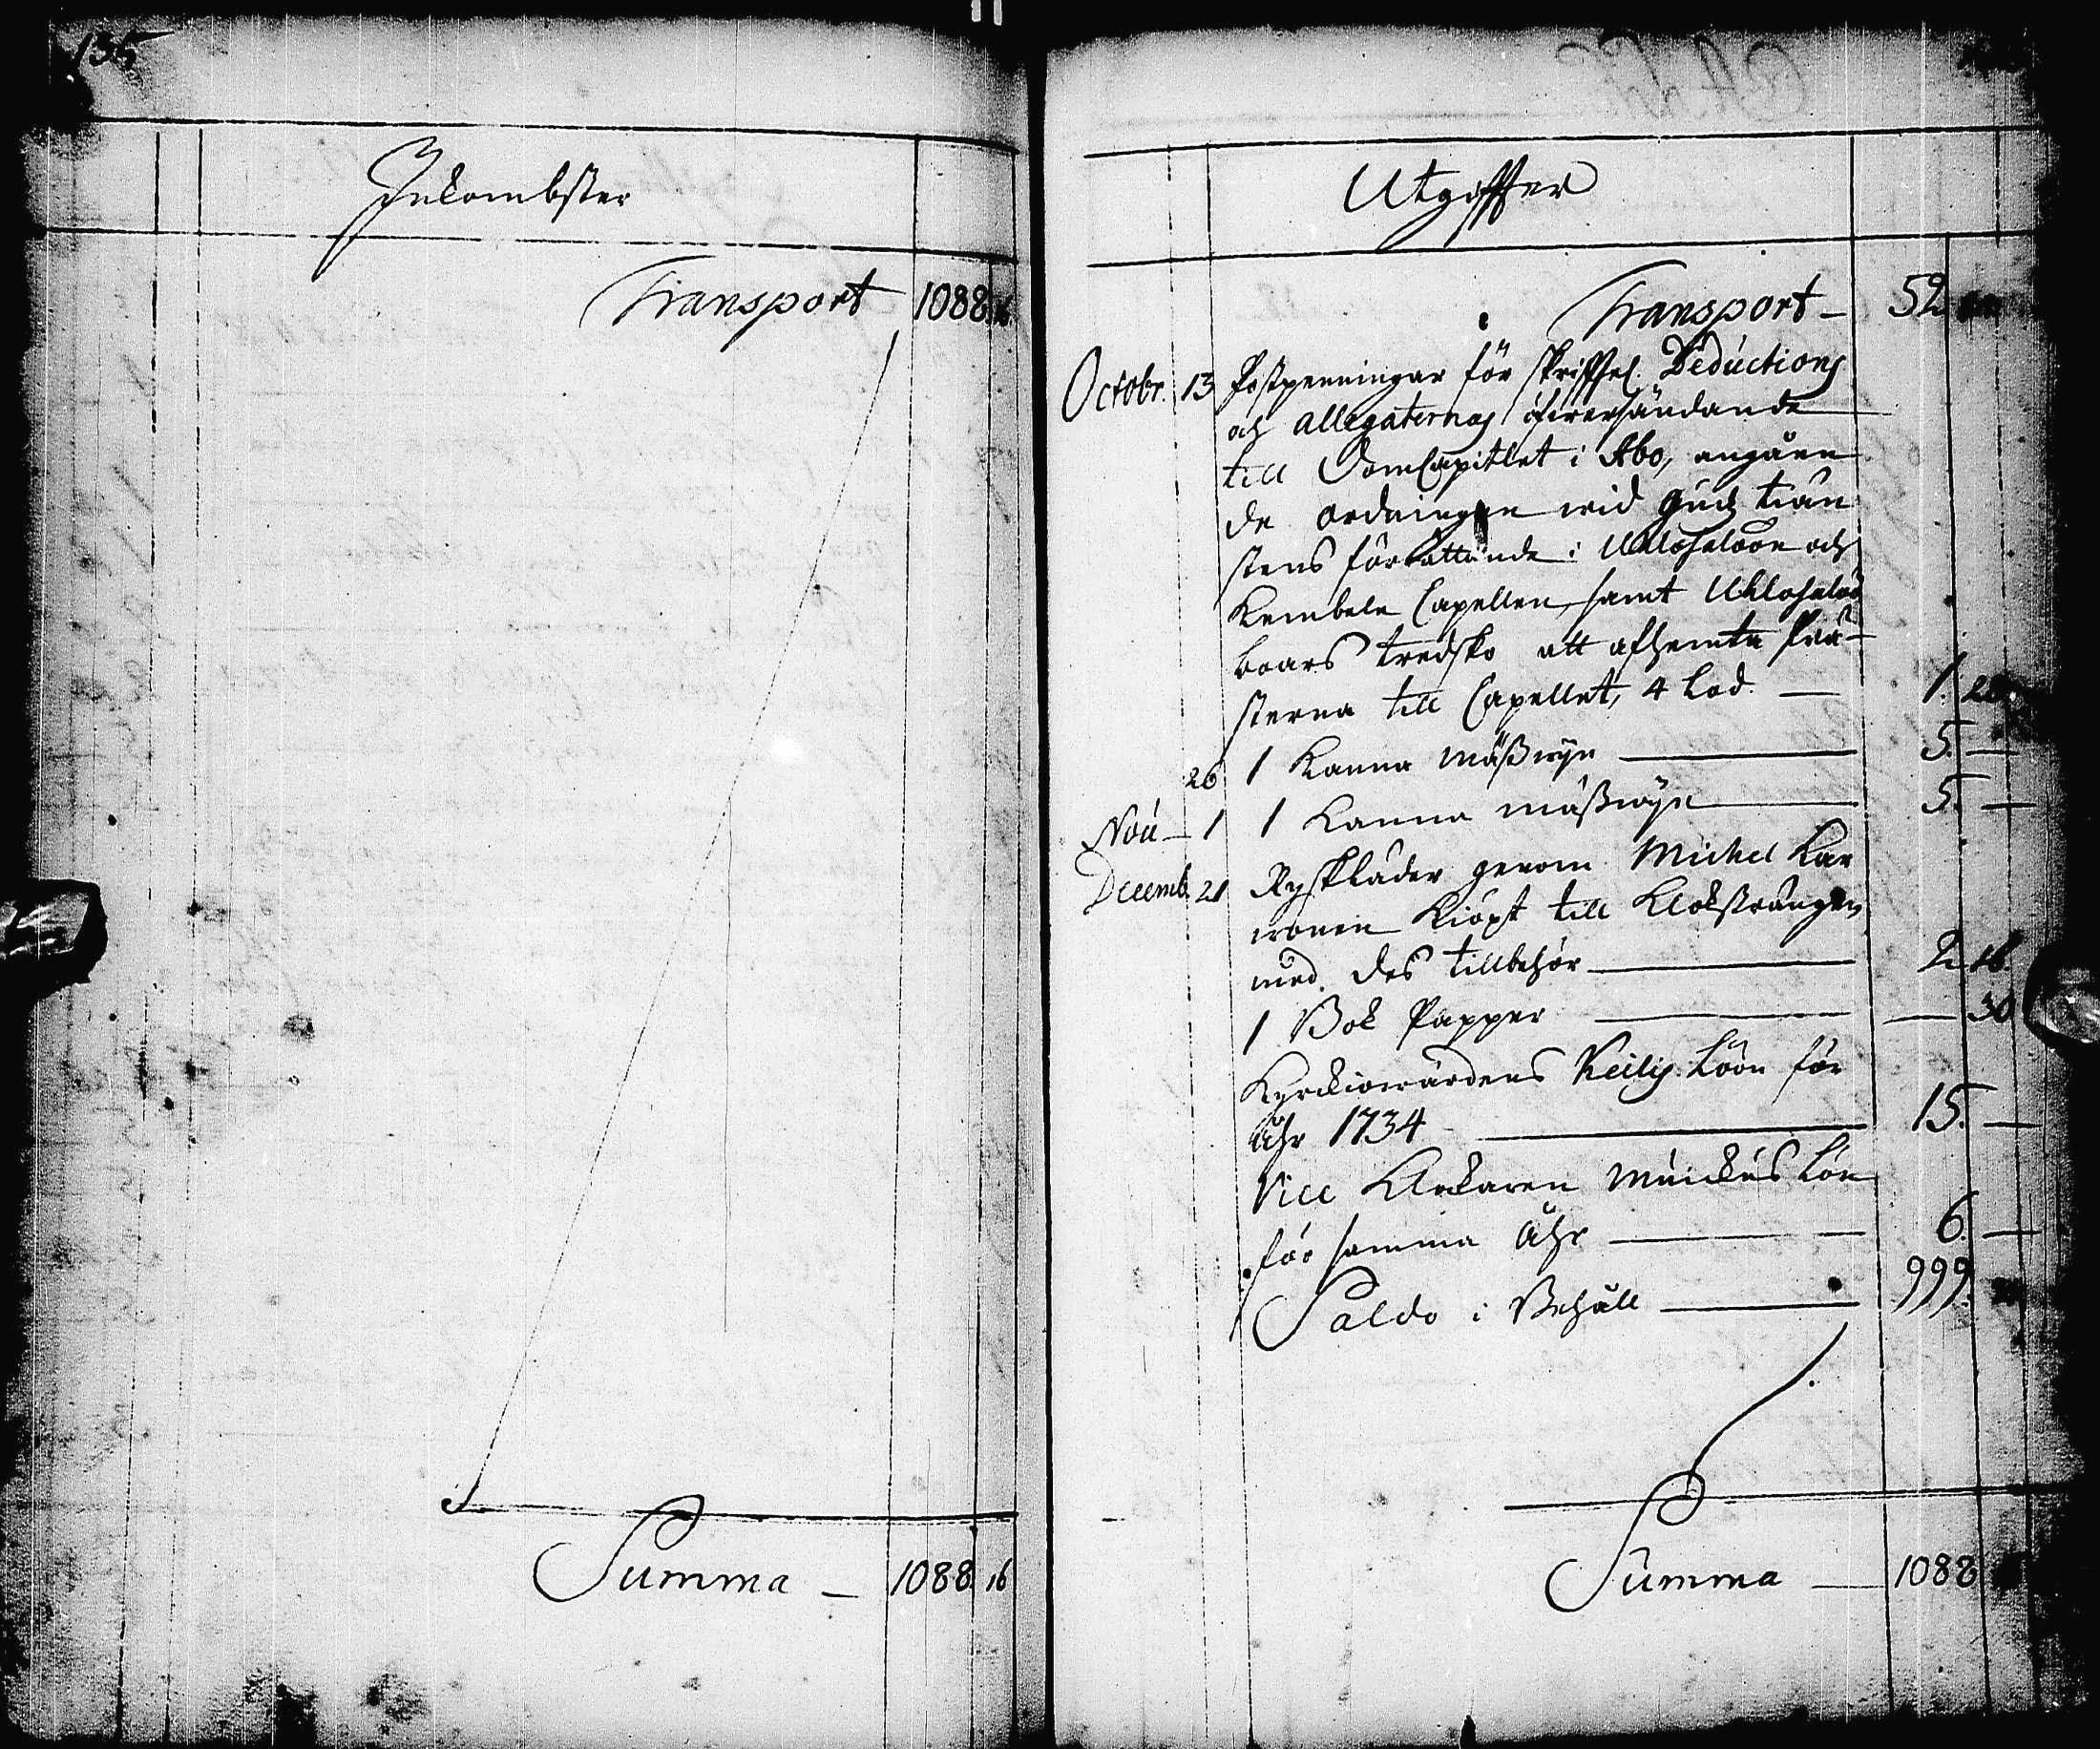 135
Inkombster
Transport 1088. 16.
Summa — 1088. 16
Utgiffter
Transport — 52
Octobr. 13 Postpenningar för skrifftel. Deductions
och allegaternas öfwersändande
till DomCapitlet i Abo, angåen
de ordningen wid Gudz tiän
stens förrättande i Uhlosaloon och
Kembele Capellen, samt Uhlosalo
boars tredsko att afhemta Prä-
sterna till Capellet, 4 Lod. — 1. 20
26 1 Kanna mässwijn — 5. —
Nov — 1 1 Kanna mässwijn — 5. —
Decemb. 21 Ryssläder genom Michel Kar
wonen Kiöpt till Klocksträngen
med des tillbehör — 2. 16.
1 Bok Papper — — 30
Kyrckiowärdens Keilis Löön för
åhr 1734 — 15. —
Vice Klockaren Muickus Lön
för samma åhr — 6. —
Saldo i Behåll — 999.
Summa — 1088